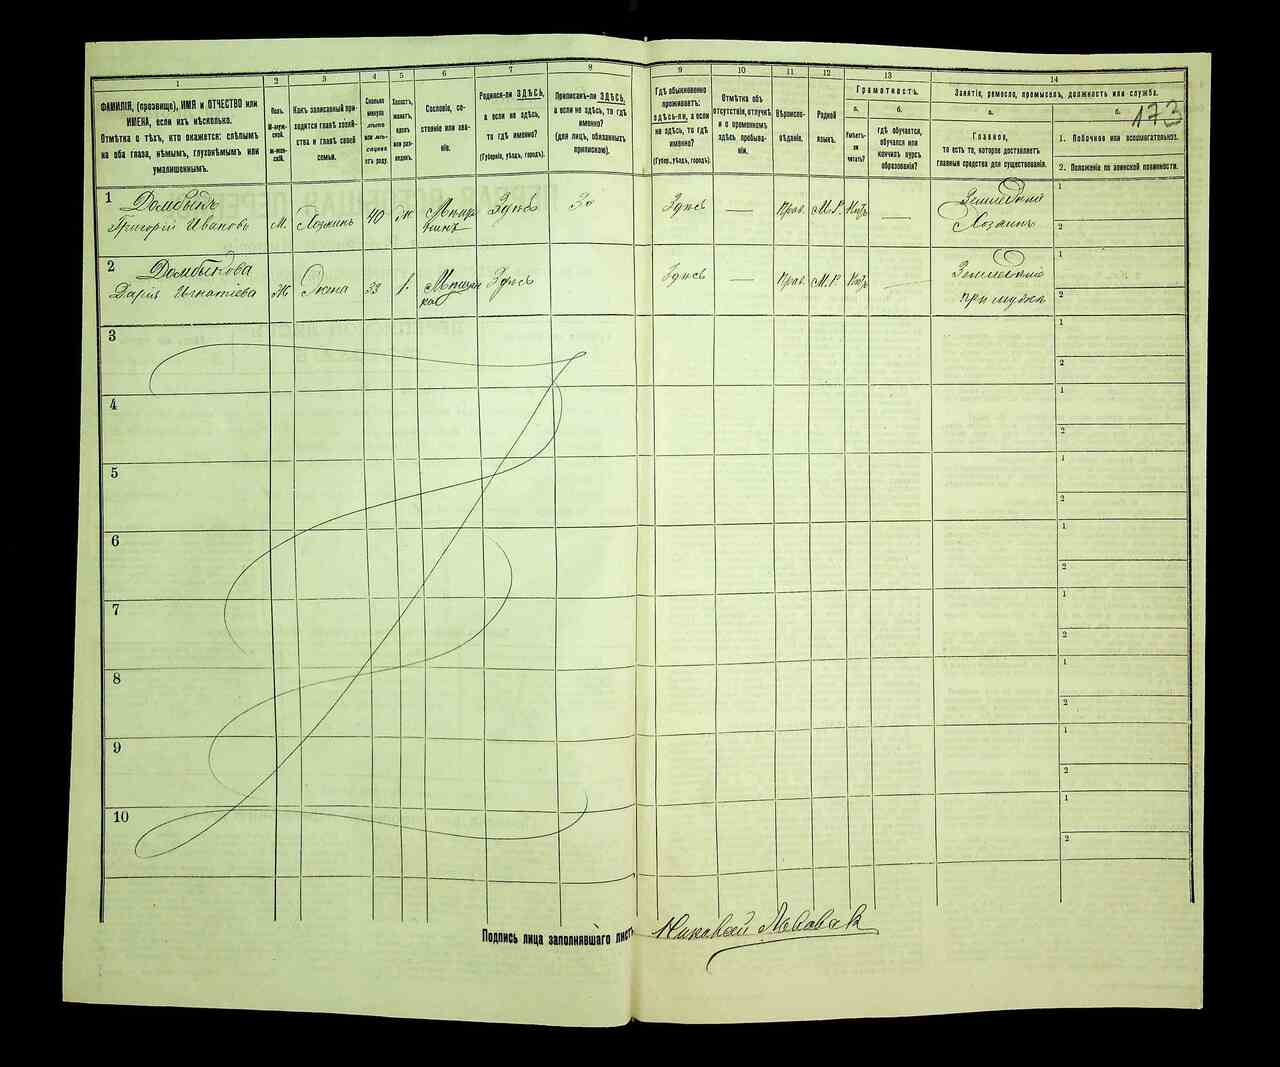 173
1
2
3
4
5
6
7
8
9
10
11
12
13
14
ФАМИЛІЯ, (прозвище), ИМЯ и ОТЧЕСТВО или
ИМЕНА, если ихъ нѣсколько.
Отмѣтка о тѣхъ, кто окажется: слѣпымъ
на оба глаза, нѣмымъ, глухонѣмымъ или
умалишеннымъ.
Полъ.
М-муж-
ской.
Ж-жен-
скій.
Какъ записанный при-
ходится главѣ хозяй-
ства и главѣ своей
семьи.
Сколько
минуло
лѣтъ
или мѣ-
сяцевъ
отъ роду.
Холостъ,
женатъ,
вдовъ
или раз-
веденъ.
Сословіе, со-
стояніе или зва-
ніе.
Родился-ли ЗДѢСЬ,
а если не здѣсь,
то гдѣ именно?
(Губернія, уѣздъ, городъ).
Приписанъ-ли ЗДѢСЬ,
а если не здѣсь, то гдѣ
именно?
(для лицъ, обязанныхъ
припискою).
Гдѣ обыкновенно
проживаетъ:
ЗДѢСЬ-ли, а если
не здѣсь, то гдѣ
именно?
(Губерн., уѣздъ, городъ).
Отмѣтка объ
отсутствіи, отлучкѣ
и о временномъ
здѣсь пребыва-
ніи.
Вѣроиспо-
вѣданіе.
Родной
языкъ.
Грамотность.
а.
Умѣетъ-
ли
читать?
б.
гдѣ обучается,
обучался или
кончилъ курсъ
образованія?
Занятія, ремесло, промыселъ, должность или служба.
а.
Главное,
то есть то, которое доставляетъ
главныя средства для существованія.
б.
1. Побочное или вспомогательное.
2. Положеніе по воинской повинности.
1
Григорій Ивановъ М. Хозяинъ 40 Здѣсь Здѣсь — Прав. М.Р. — Хозяинъ
1
2
2 Домбыкова
Дарія Игнатіева Ж Жена 33 Здѣсь Здѣсь — Прав. М.Р. —
1
2
3
1
2
4
1
2
5
1
2
6
1
2
7
1
2
8
1
2
9
1
2
10
1
2
Подпись лица заполнявшаго листъ
Николай